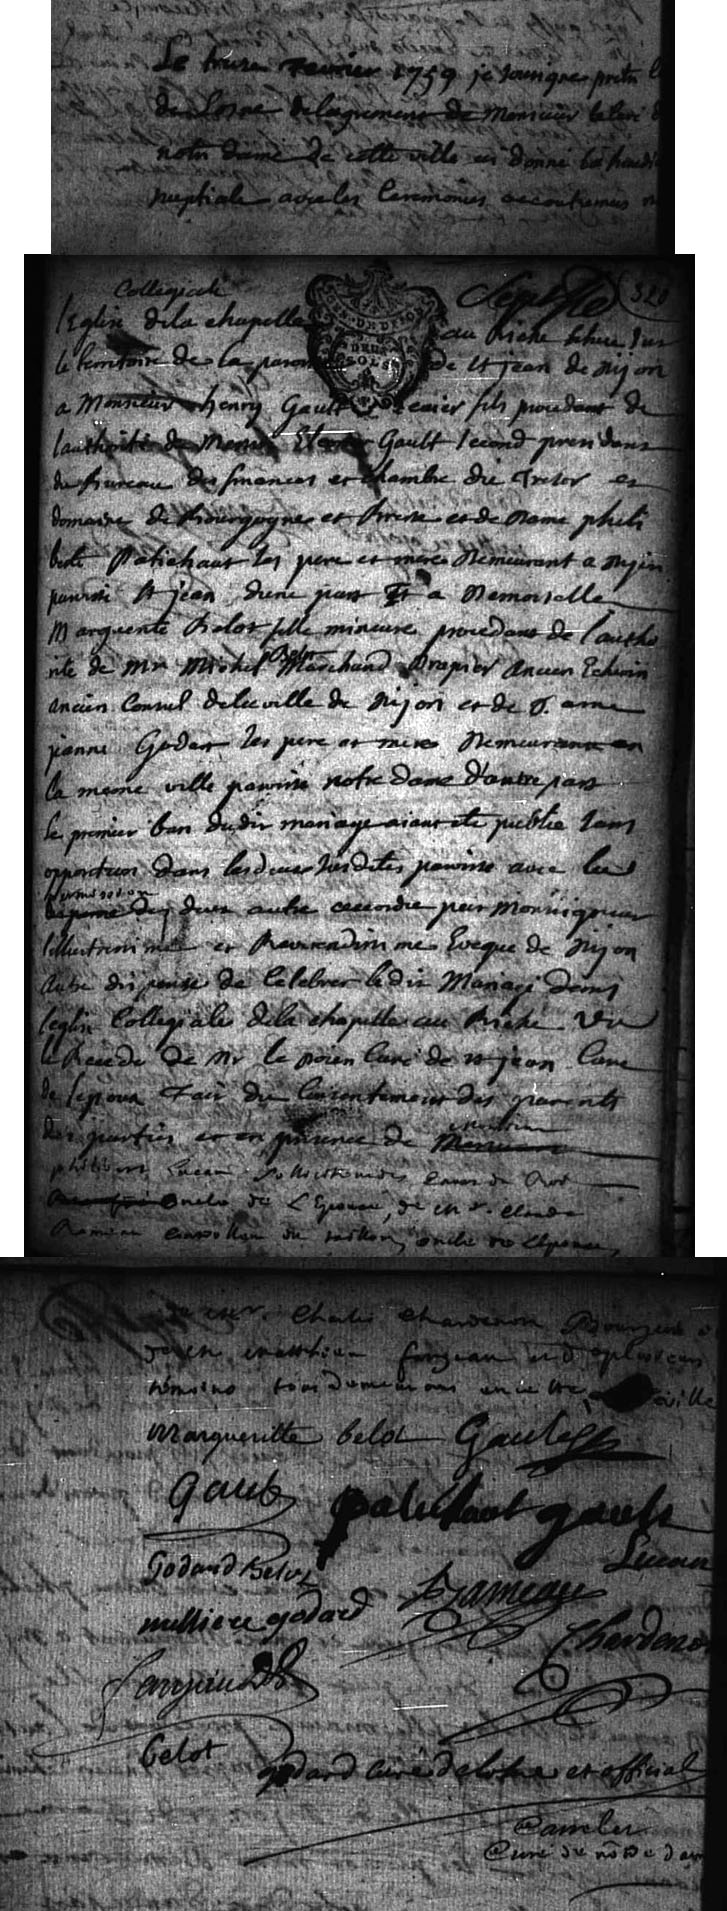 Le treize fevrier 1759 je soussigne pretre
de Losne de lagrement de Monsieur le Curé
notre dame de cette ville ai donné la
nuptiale avec les Ceremonies accoutumées
Collegiale
320
l'Eglise de la chapelle au Riche scituée sur
GEN. DE DIJON
DEUX
SOLS
le territoire de la paroisse de st jean de dijon
a Monsieur henry Gault Ecuier fils procedant de
lauthorité de Gault second president
du Bureau des finances et chambre du Tresor et
domaine de Bourgogne et Bresse et de Dame phili
berte Patichaut ses pere et mere Demeurant a dijon
paroisse st jean dune part Et a Demoiselle
Marguerite Belot fille mineure procedant de l'autho
Belot
rité de Mr Michel Marchand Drapier Ancien Echevin
ancien Consul de la ville de dijon et de Dame
jeanne Godart ses pere et mere Demeurant en
la meme ville paroisse notre Dame d'autre part
le premier ban dudit mariage aiant été publié sans
opposition dans les deux susdites paroisses avec les
permission
des deux autre accordée par Monseigneur
lillustrissime et Reverendissime Eveque de dijon
Autre dispense de Celebrer le dit Mariage dans
leglise Collegiale de la chapelle au Riche Vu
le Recede de Mr le Doien Curé de st jean Curé
de l'epoux Fait du Consentement des parents
des parties et en presence de
philibert Lucan
oncle de L'Epouse, de Mr. Claude
Rameau oncle de l'epouse,
de Mr. Charles Chardenon Bourgeois
de Mr Matthieu et de plusieurs
temoins tous demeurans en cette ville
Margueritte belot Gault
Gault patichaot gault
Lucan
Godard Belot
Rameau
mulliere godard
Chardenon
belot
godard curé de losne et official
Curé de notre dame